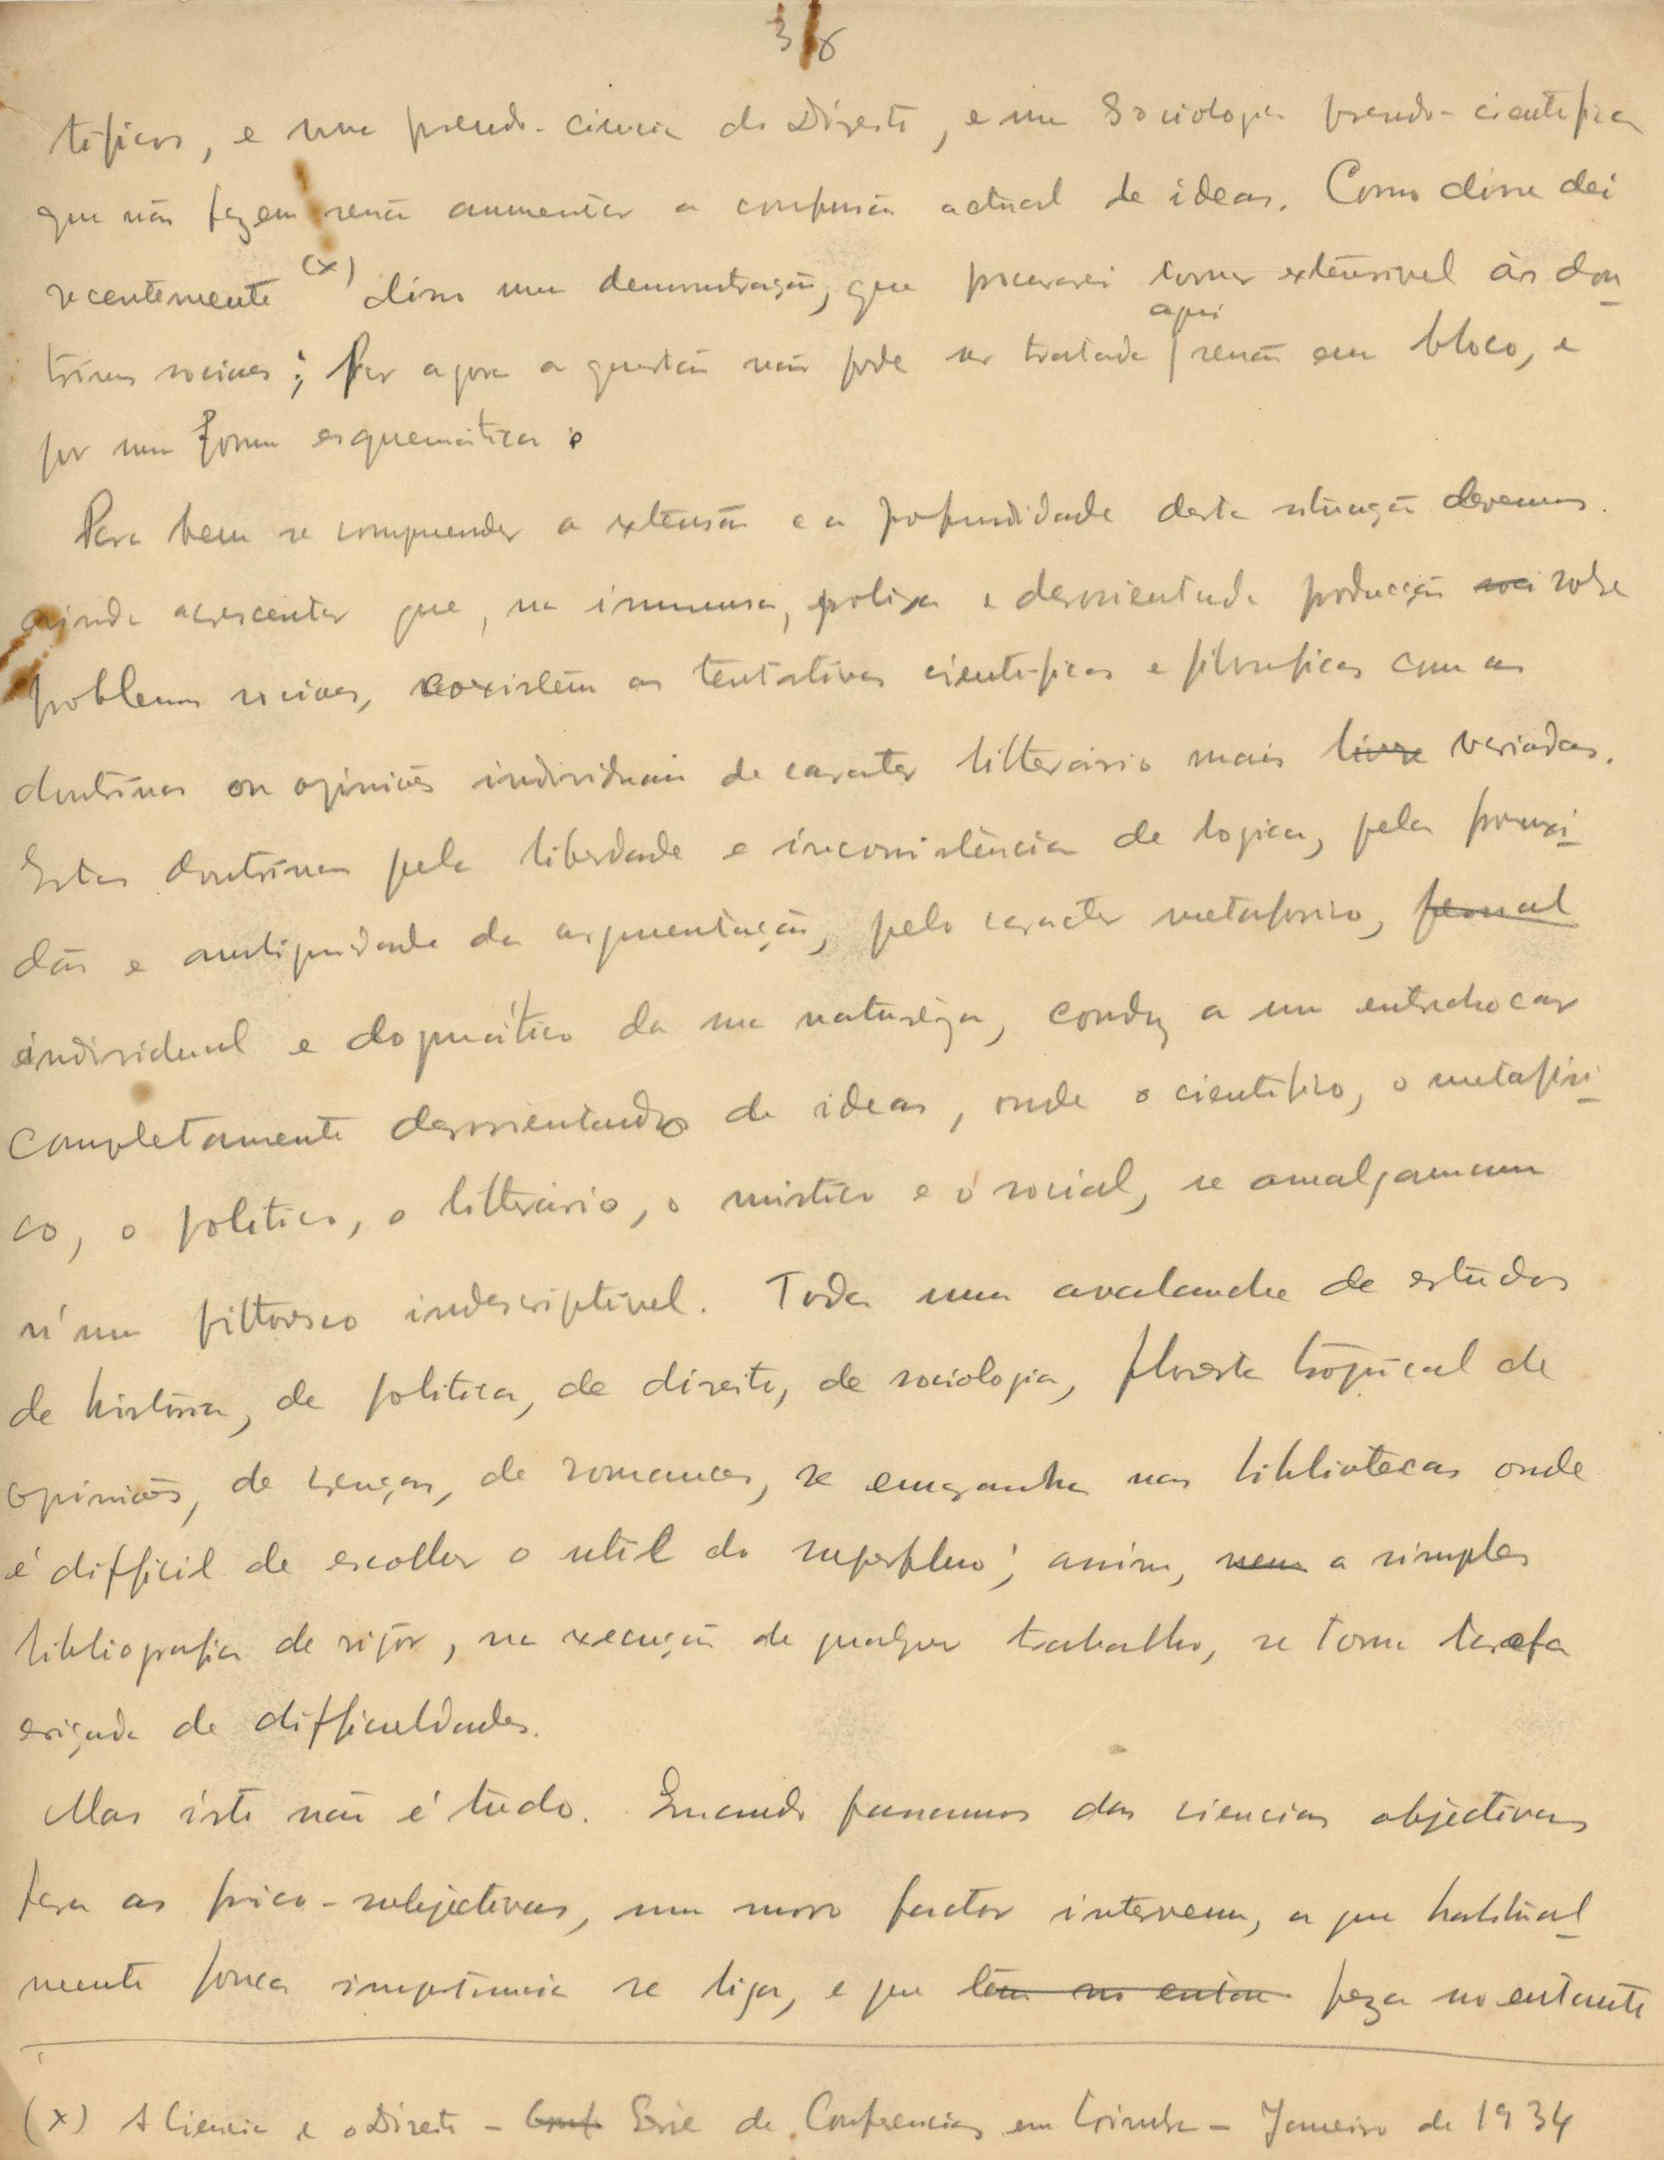 3/8
tificos, e uma pseudo-ciencia do Direito, e uma Sociologia pseudo-cientifica
que não fazem senão aumentar a confusão actual de ideas. Como disse dei
recentemente (x) disso uma demonstração, que procurarei tornar extensivel às dou-
trinas sociaes; Por agora a questão não pode ser tratada aqui senão em bloco, e
por uma forma esquemática.
Para bem se compreender a extensão e a profundidade desta situação devemos
ainda acrescentar que, na immensa, prolixa e desorientada producção soci sobre
problemas sociaes, coexistem as tentativas cientificas e filosoficas com as
doutrinas ou opiniões individuais de caracter litterário mais livre variadas.
Estas doutrinas pela liberdade e inconsistência de logica, pela prouxi-
dão e ambiguidade da argumentação, pelo caracter metaforico,
individual e dogmático da sua natureza, conduz a um entrechocar
completamente desorientado de ideas, onde o cientifico, o metafisi-
co, o politico, o litterário, o mistico e o social, se amalgamam
n'um pittoresco indescriptivel. Toda uma avalanche de estudos
de história, de politica, de direito, de sociologia, floresta tropical de
opiniões, de crenças, de romances, se emaranha nas bibliotecas onde
é difficil de escolher o util do superfluo; assim, nem a simples
bibliografia de rigôr, na execução de qualquer trabalho, se torna tarefa
eriçada de difficuldades.
Mas isto não é tudo. Quando passamos das ciencias objectivas
para as psico-subjectivas, um novo factor intervem, a que habitual-
mente pouca importancia se liga, e que tem no entan peza no entanto
(x) A Ciencia e o Direito – Conf Serie de Conferencias em Coimbra – Janeiro de 1934